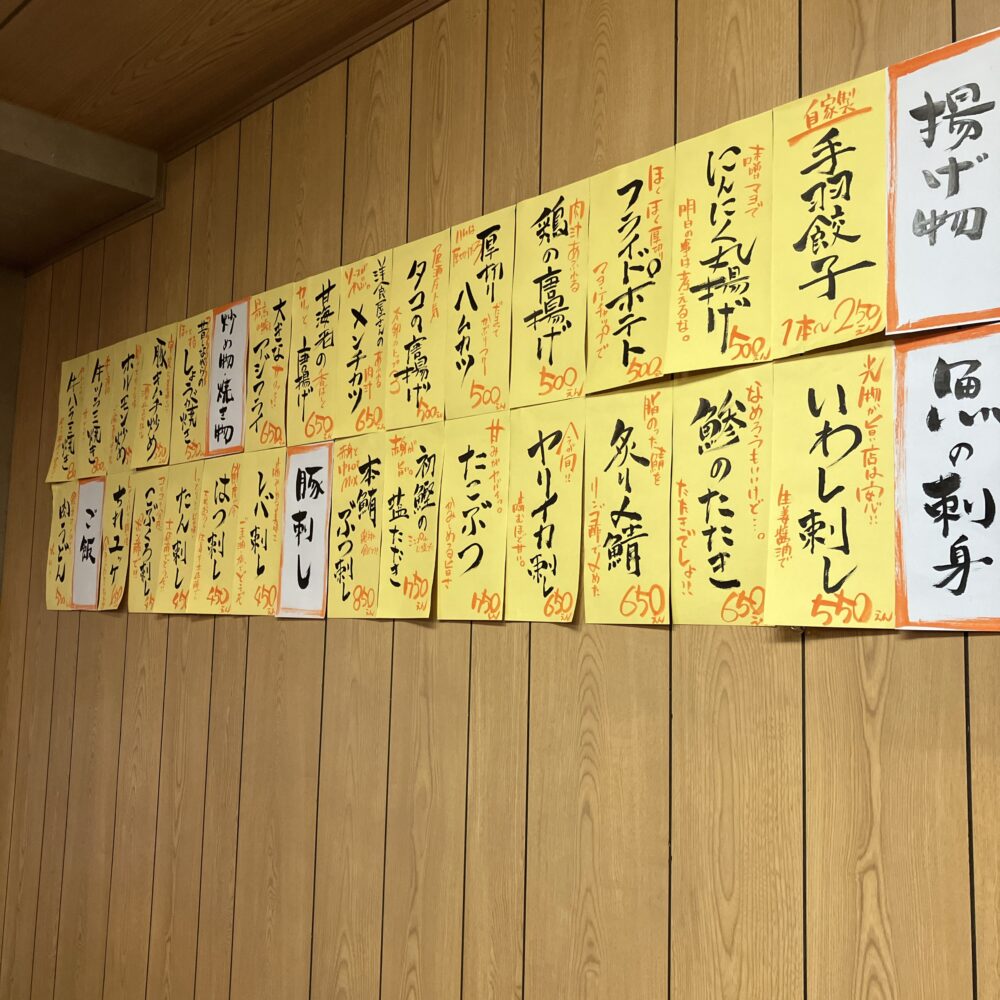 揚げ物
自家製
手羽餃子
1本〜250えん
味噌マヨで
にんにく丸揚げ
明日の事は考えるな。
500えん
ほくほく厚切り
フライドポテト
マヨ・ケチャップで
500えん
肉汁あふれる
鶏の唐揚げ
500えん
厚切り
ハムカツ
500えん
居酒屋の人気
タコの唐揚げ
500えん
洋食屋さんの
メンチカツ
650
甘海老の
唐揚げ
650
大きな
アジフライ
650
炒め物・焼き物
昔ながらの
しょうが焼き
豚キムチ炒め
ホルモン炒め
牛ハラミ焼き
魚の刺身
光物が旨い店は安心!!
いわし刺し
生姜醤油で
550えん
なめろうもいいけど…。
鯵のたたき
たたきでしょ!!
650
脂のった鯖を
炙り〆鯖
650えん
今が旬!!
ヤリイカ刺し
噛むほど甘い。
650えん
甘みがヤバイ。
たこぶつ
750えん
初鰹の
塩たたき
750えん
本鮪
ぶつ刺し
850えん
豚刺し
レバ刺し
450
はつ刺し
450
たん刺し
450
こぶくろ刺し
450
ご飯
肉うどん